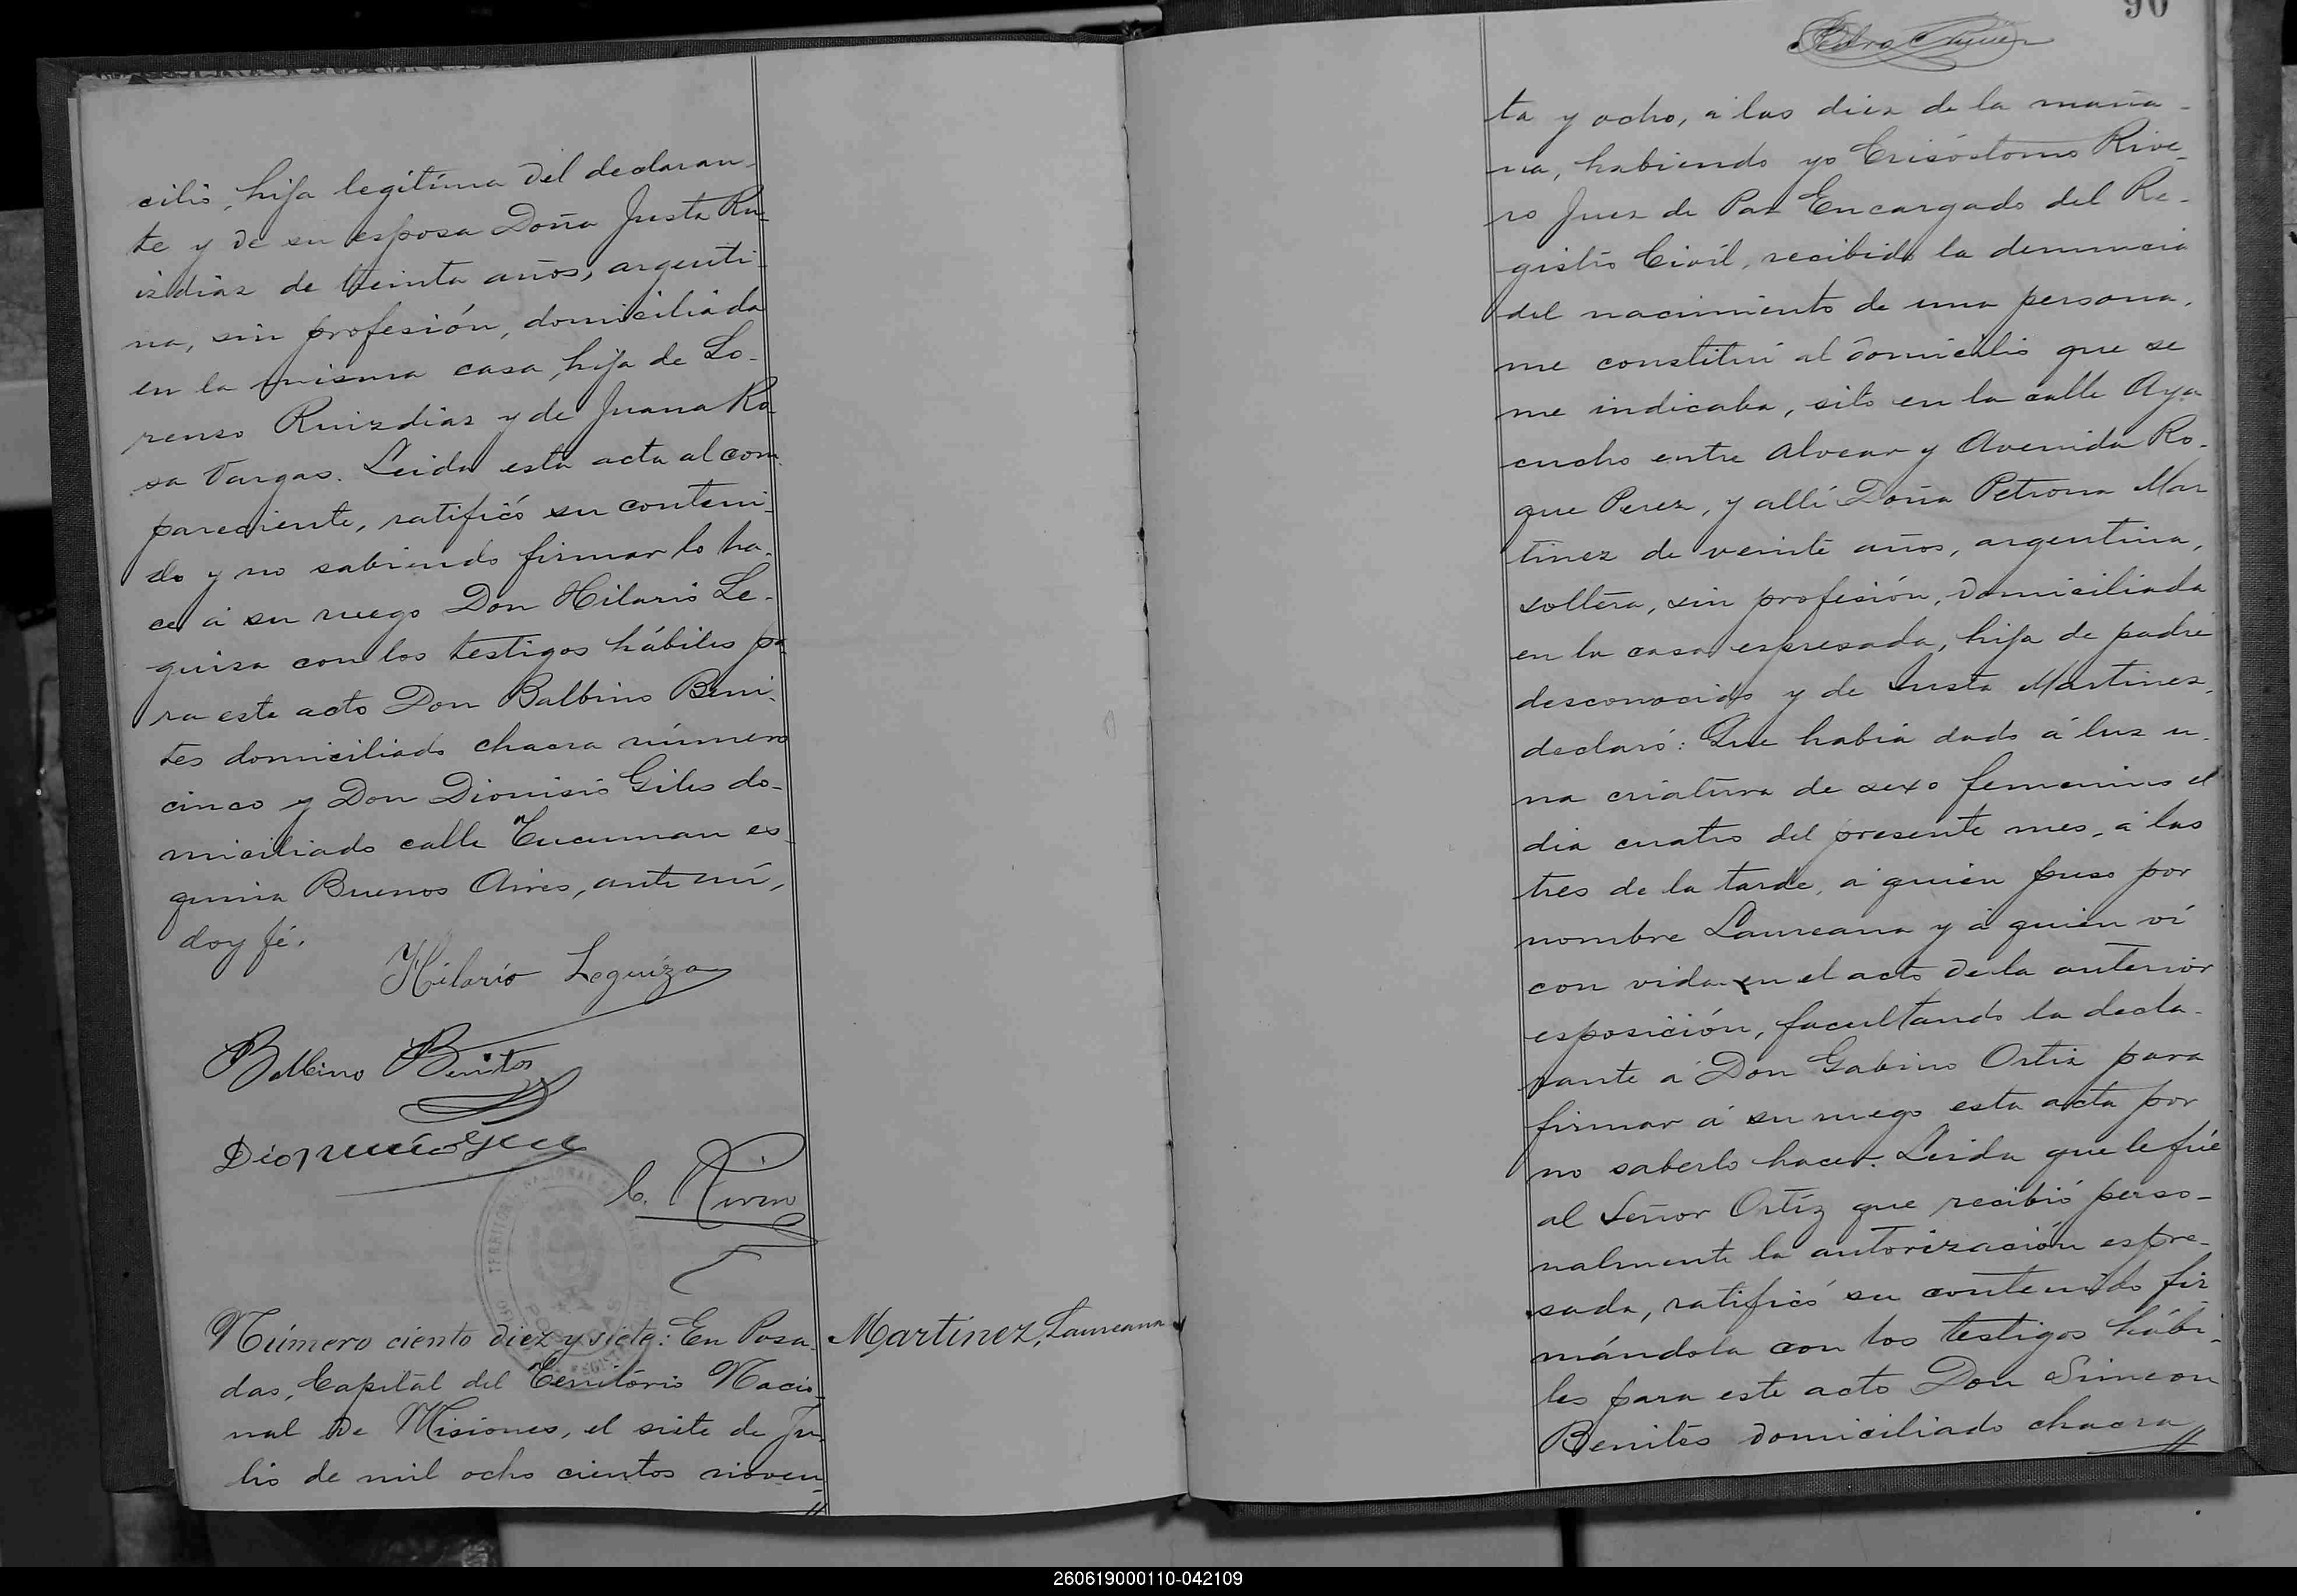 cilio, hija legítima del declaran-
te y de su esposa Doña Justa Ru-
izdiaz de treinta años, argenti-
na, sin profesión, domiciliada
en la misma casa, hija de Lo-
renso Ruizdias y de Juana Ro
sa Vargas. Leida esta acta al com-
pareciente, ratificó su conteni-
do y no sabiendo firmar lo ha-
ce á su ruego Don Hilario Le-
guiza con los testigos hábiles pa
ra este acto Don Balbino Beni-
tes domiciliado chacra número
cinco y Don Dionisio Giles do-
miciliado calle Tucuman es-
quina Buenos Aires, ante mí,
doy fé.
Hilario Leguiza
Balbino Benites
C. Rivero
Número ciento diez y siete: En Posa-
Martinez, Laureana
das, Capital del Territorio Nacio-
nal de Misiones, el siete de Ju-
lio de mil ocho cientos noven-
90
Pedro
ta y ocho, á las diez de la maña-
na, habiendo yo Crisóstomo Rive-
ro Juez de Paz Encargado del Re-
gistro Civil, recibido la denuncia
del nacimiento de una persona,
me constituí al domicilio que se
me indicaba, sito en la calle Aya
cucho entre Alvear y Avenida Ro-
que Perez, y allí Doña Petrona Mar
tinez de veinte años, argentina,
soltera, sin profesión, domiciliada
en la casa espresada, hija de padre
desconocido y de Justa Martinez,
declaró: Que habia dado á luz u-
na criatura de sexo femenino el
dia cuatro del presente mes, á las
tres de la tarde, á quien puso por
nombre Laureana y á quien ví
con vida en el acto de la anterior
esposición, facultando la decla-
rante á Don Gabino Ortiz para
firmar á su ruego esta acta por
no saberlo hacer. Leida que le fué
al Señor Ortíz que recibió perso-
nalmente la autorización espre-
sada, ratificó su contenido fir
mándola con los testigos hábi-
les para este acto Don Simeon
Benites domiciliado chacra
260619000110-042109